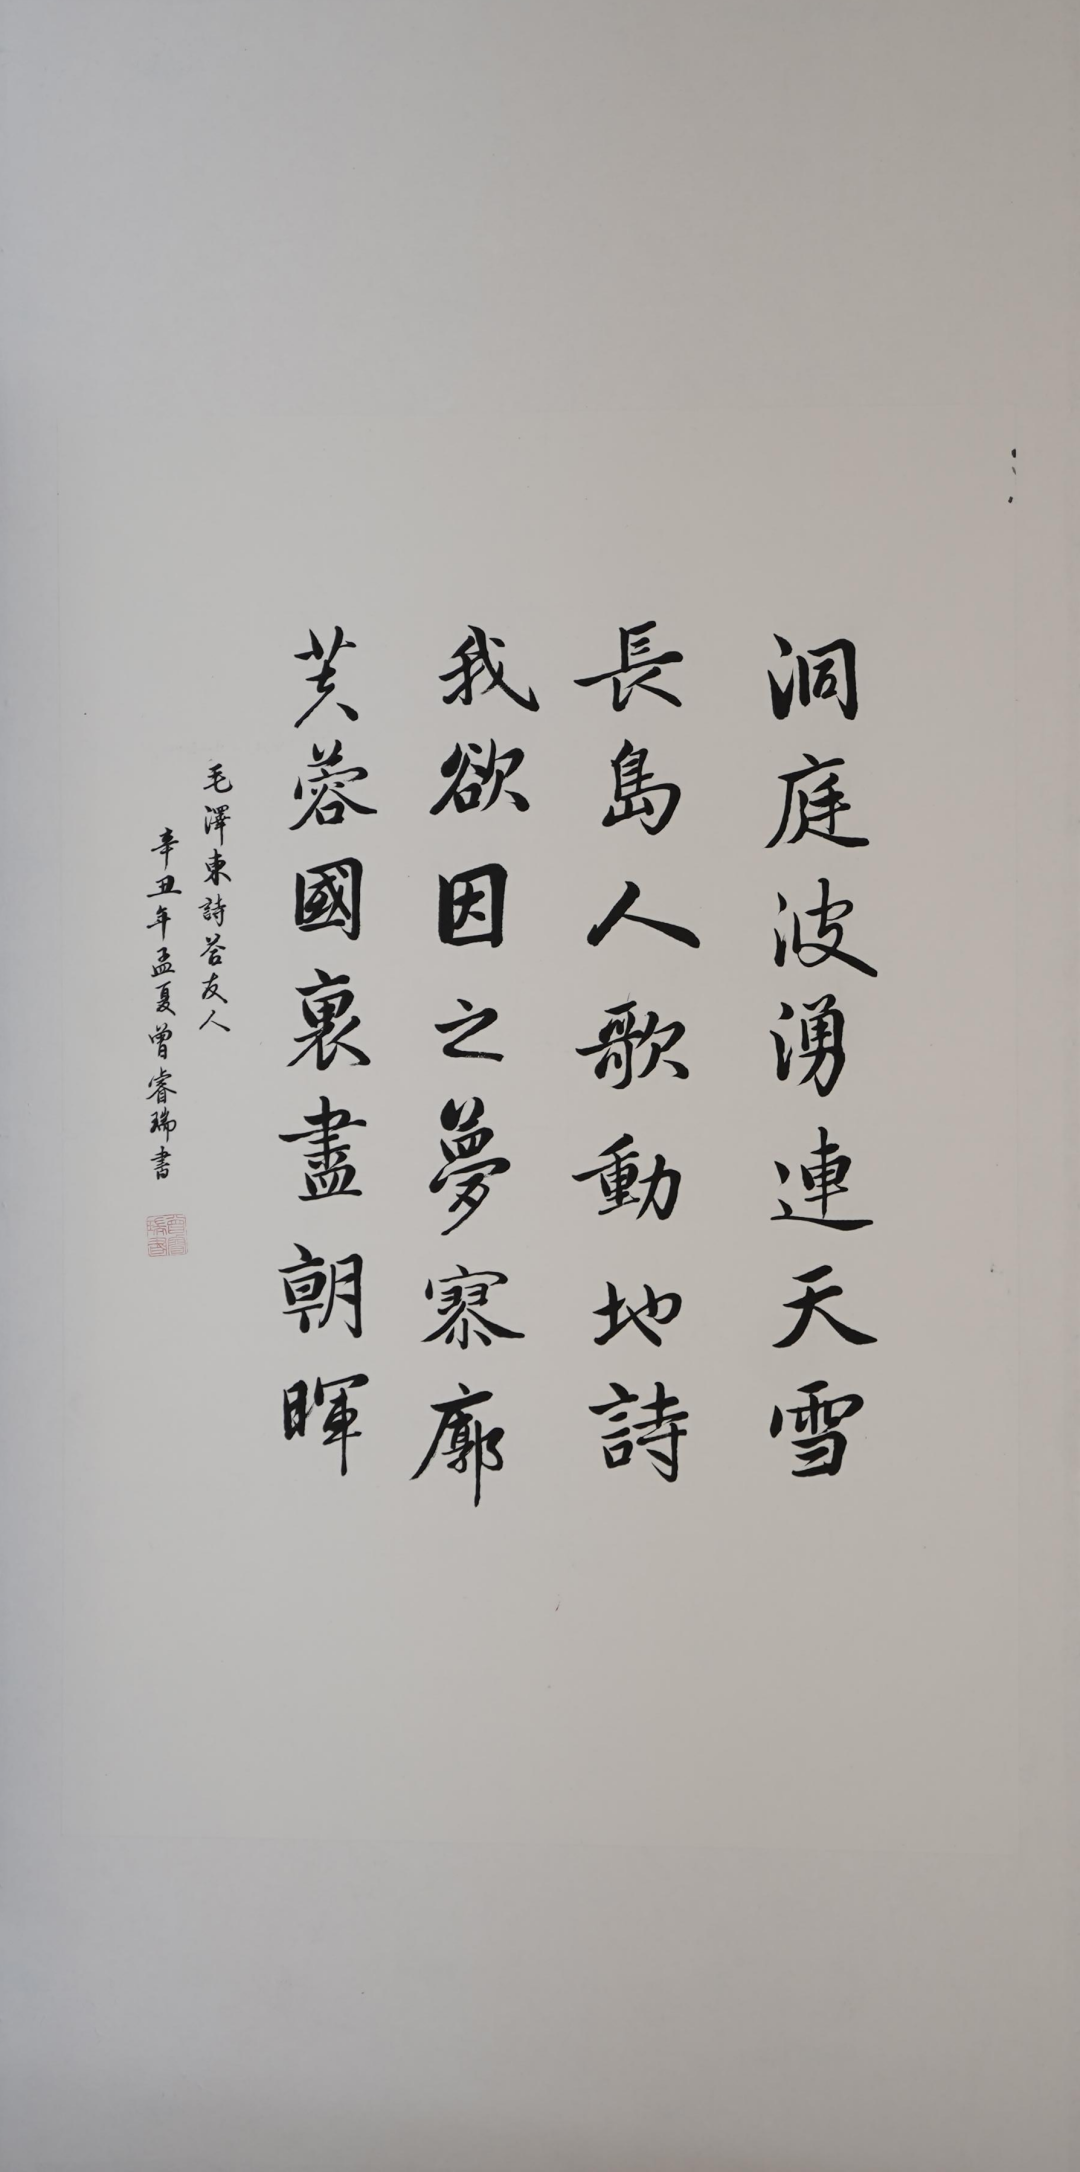 洞庭波湧連天雪
長島人歌動地詩
我欲因之夢寥廓
芙蓉國裏盡朝暉
毛澤東詩荅友人
辛丑年孟夏曾睿瑞書